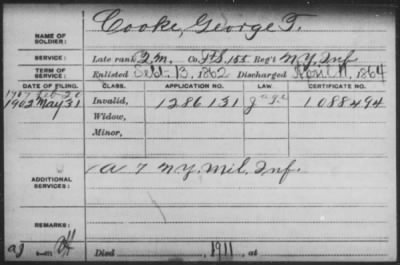 NAME OF SOLDIER: Cooke, George T.
SERVICE: Late rank Q.M. Co. F.S. 155 Reg't N.Y. Inf
TERM OF SERVICE: Enlisted Oct. 13, 1862 Discharged 1864
DATE OF FILING. CLASS. APPLICATION NO. LAW. CERTIFICATE NO.
1902 May 31 Invalid, 1286131 1088494
Widow,
Minor,
ADDITIONAL SERVICES: A 7 N.Y. Mil. Inf.
REMARKS:
Died 1911, at